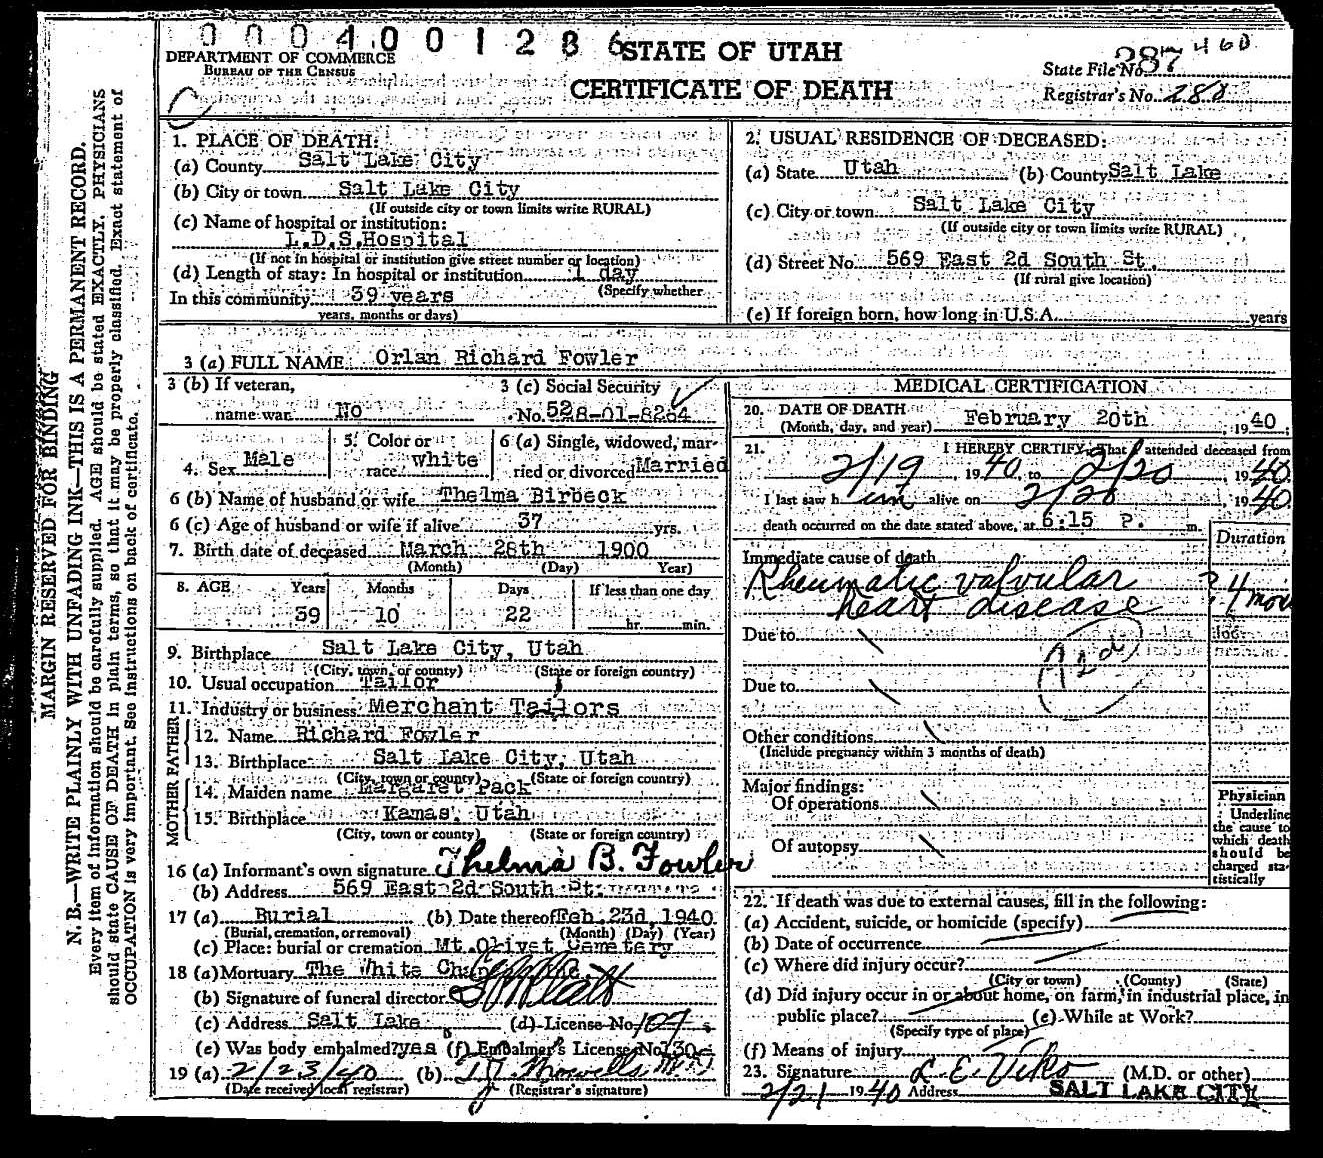 0004001286
STATE OF UTAH
CERTIFICATE OF DEATH
DEPARTMENT OF COMMERCE
BUREAU OF THE CENSUS
State File No. 287 460
Registrar's No. 288
MARGIN RESERVED FOR BINDING
N. B.—WRITE PLAINLY WITH UNFADING INK—THIS IS A PERMANENT RECORD.
Every item of information should be carefully supplied. AGE should be stated EXACTLY. PHYSICIANS
should state CAUSE OF DEATH in plain terms, so that it may be properly classified. Exact statement of
OCCUPATION is very important. See instructions on back of certificate.
1. PLACE OF DEATH:
(a) County Salt Lake City
(b) City or town Salt Lake City
(If outside city or town limits write RURAL)
(c) Name of hospital or institution:
L.D.S. Hospital
(If not in hospital or institution give street number or location)
(d) Length of stay: In hospital or institution 1 day
(Specify whether
In this community 39 years
years, months or days)
2. USUAL RESIDENCE OF DECEASED:
(a) State Utah (b) County Salt Lake
(c) City or town Salt Lake City
(If outside city or town limits write RURAL)
(d) Street No. 569 East 2d South St.
(If rural give location)
(e) If foreign born, how long in U.S.A. years
3 (a) FULL NAME Orlan Richard Fowler
3 (b) If veteran,
name war No
3 (c) Social Security
No. 528-01-8264
4. Sex Male
5. Color or
race white
6 (a) Single, widowed, mar-
ried or divorced Married
6 (b) Name of husband or wife Thelma Birbeck
6 (c) Age of husband or wife if alive 37 yrs.
7. Birth date of deceased March 28th 1900
(Month) (Day) Year)
8. AGE Years Months Days If less than one day
39 10 22 hr. min.
9. Birthplace Salt Lake City, Utah
(City, town, or county) (State or foreign country)
10. Usual occupation Tailor
11. Industry or business Merchant Tailors
FATHER
12. Name Richard Fowler
13. Birthplace Salt Lake City, Utah
(City, town or county) (State or foreign country)
MOTHER
14. Maiden name Margaret Pack
15. Birthplace Kamas, Utah
(City, town or county) (State or foreign country)
16 (a) Informant's own signature Thelma B. Fowler
(b) Address 569 East 2d South St.
17 (a) Burial (b) Date thereof Feb. 23d, 1940
(Burial, cremation, or removal) (Month) (Day) (Year)
(c) Place: burial or cremation Mt. Olivet Cemetery
18 (a) Mortuary The White
(b) Signature of funeral director
(c) Address Salt Lake (d) License No. 109
(e) Was body embalmed? yes (f) Embalmer's License No. 130
19 (a) 2/23/40 (b)
(Date received local registrar) (Registrar's signature)
MEDICAL CERTIFICATION
20. DATE OF DEATH February 20th, 1940;
(Month, day, and year)
21. I HEREBY CERTIFY, That I attended deceased from
2/19, 1940, to 2/20, 1940.
I last saw him alive on 2/20, 1940
death occurred on the date stated above, at 6:15 P. m.
Duration
Immediate cause of death
Rheumatic valvular ? 4 mos
heart disease
Due to
92d
Due to
Other conditions
(Include pregnancy within 3 months of death)
Major findings:
Of operations
Of autopsy
Physician
Underline
the cause to
which death
should be
charged sta-
tistically
22. If death was due to external causes, fill in the following:
(a) Accident, suicide, or homicide (specify)
(b) Date of occurrence
(c) Where did injury occur?
(City or town) (County) (State)
(d) Did injury occur in or about home, on farm, in industrial place, in
public place? (e) While at Work?
(Specify type of place)
(f) Means of injury
23. Signature L. E. Viko (M.D. or other)
2/21 1940 Address SALT LAKE CITY